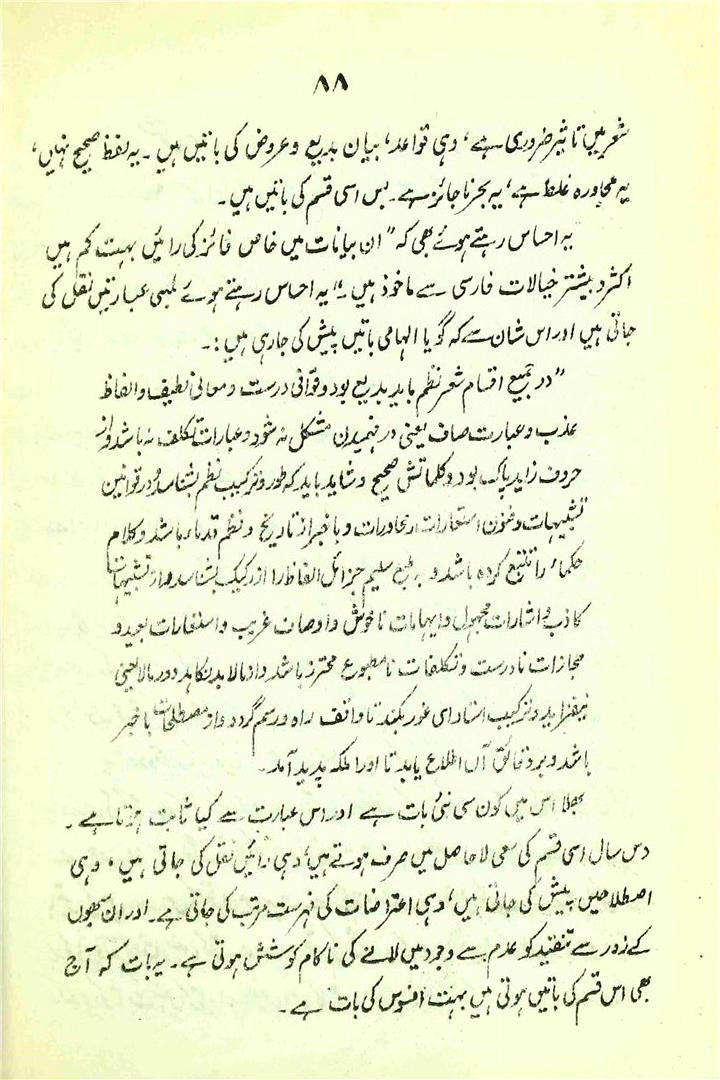 ۸۸
شعر میں تاثیر ضروری ہے، وہی قواعد، بیان بدیع و عروض کی باتیں ہیں۔ یہ لفظ صحیح نہیں،
یہ محاورہ غلط ہے، یہ بحر ناجائز ہے۔ بس اسی قسم کی باتیں ہیں۔
یہ احساس رہتے ہوئے بھی کہ "ان بیانات میں خاص فائز کی رائیں بہت کم ہیں
اکثر و بیشتر خیالات فارسی سے ماخوذ ہیں۔" یہ احساس رہتے ہوئے لمبی عبارتیں نقل کی
جاتی ہیں اور اس شان سے کہ گویا الہامی باتیں پیش کی جا رہی ہیں:۔
"در جمیع اقسام شعر نظم باید بدیع بود و قوافی درست و معانی لطیف و الفاظ
عذب و عبارت صاف یعنی در فہمیدن مشکل نہ شود و عبارات تکلف نہ باشد و از
حروف زاید پاک بود و کلماتش صحیح و شاید باید کہ طور و ترکیب نظم بشناسد و در قوانین
تشبیہات و فنون استعارات و محاورات و باخبر از تاریخ و نظم قدماء باشد و کلام
حکماء را تتبع کردہ باشد و بہ طبع سلیم جزائل الفاظ را از رکیک بشناسد و از تشبیہات
کاذب و اشارات مجہول و ایہامات ناخوش و اوصاف غریب و استعارات بعید و
مجازات نادرست و تکلفات نامطبوع محترز باشد و از مالا بد نکاہد و در مالا یعنی
نیفزاید و ترکیب استاد ای غور بکند تا واقف راہ و رسم گردد و از مصطلحات با خبر
باشد و بر دقائق آں اطلاع یابد تا او را ملکہ پدید آمد۔
بھلا اس میں کون سی نئی بات ہے اور اس عبارت سے کیا ثابت ہوتا ہے۔
دس سال اسی قسم کی سعی لاحاصل میں صرف ہوتے ہیں، وہی رائیں نقل کی جاتی ہیں، وہی
اصطلاحیں پیش کی جاتی ہیں، وہی اعتراضات کی فہرست مرتب کی جاتی ہے۔ اور ان سبھوں
کے زور سے تنقید کو عدم سے وجود میں لانے کی ناکام کوشش ہوتی ہے۔ یہ بات کہ آج
بھی اس قسم کی باتیں ہوتی ہیں بہت افسوس کی بات ہے۔